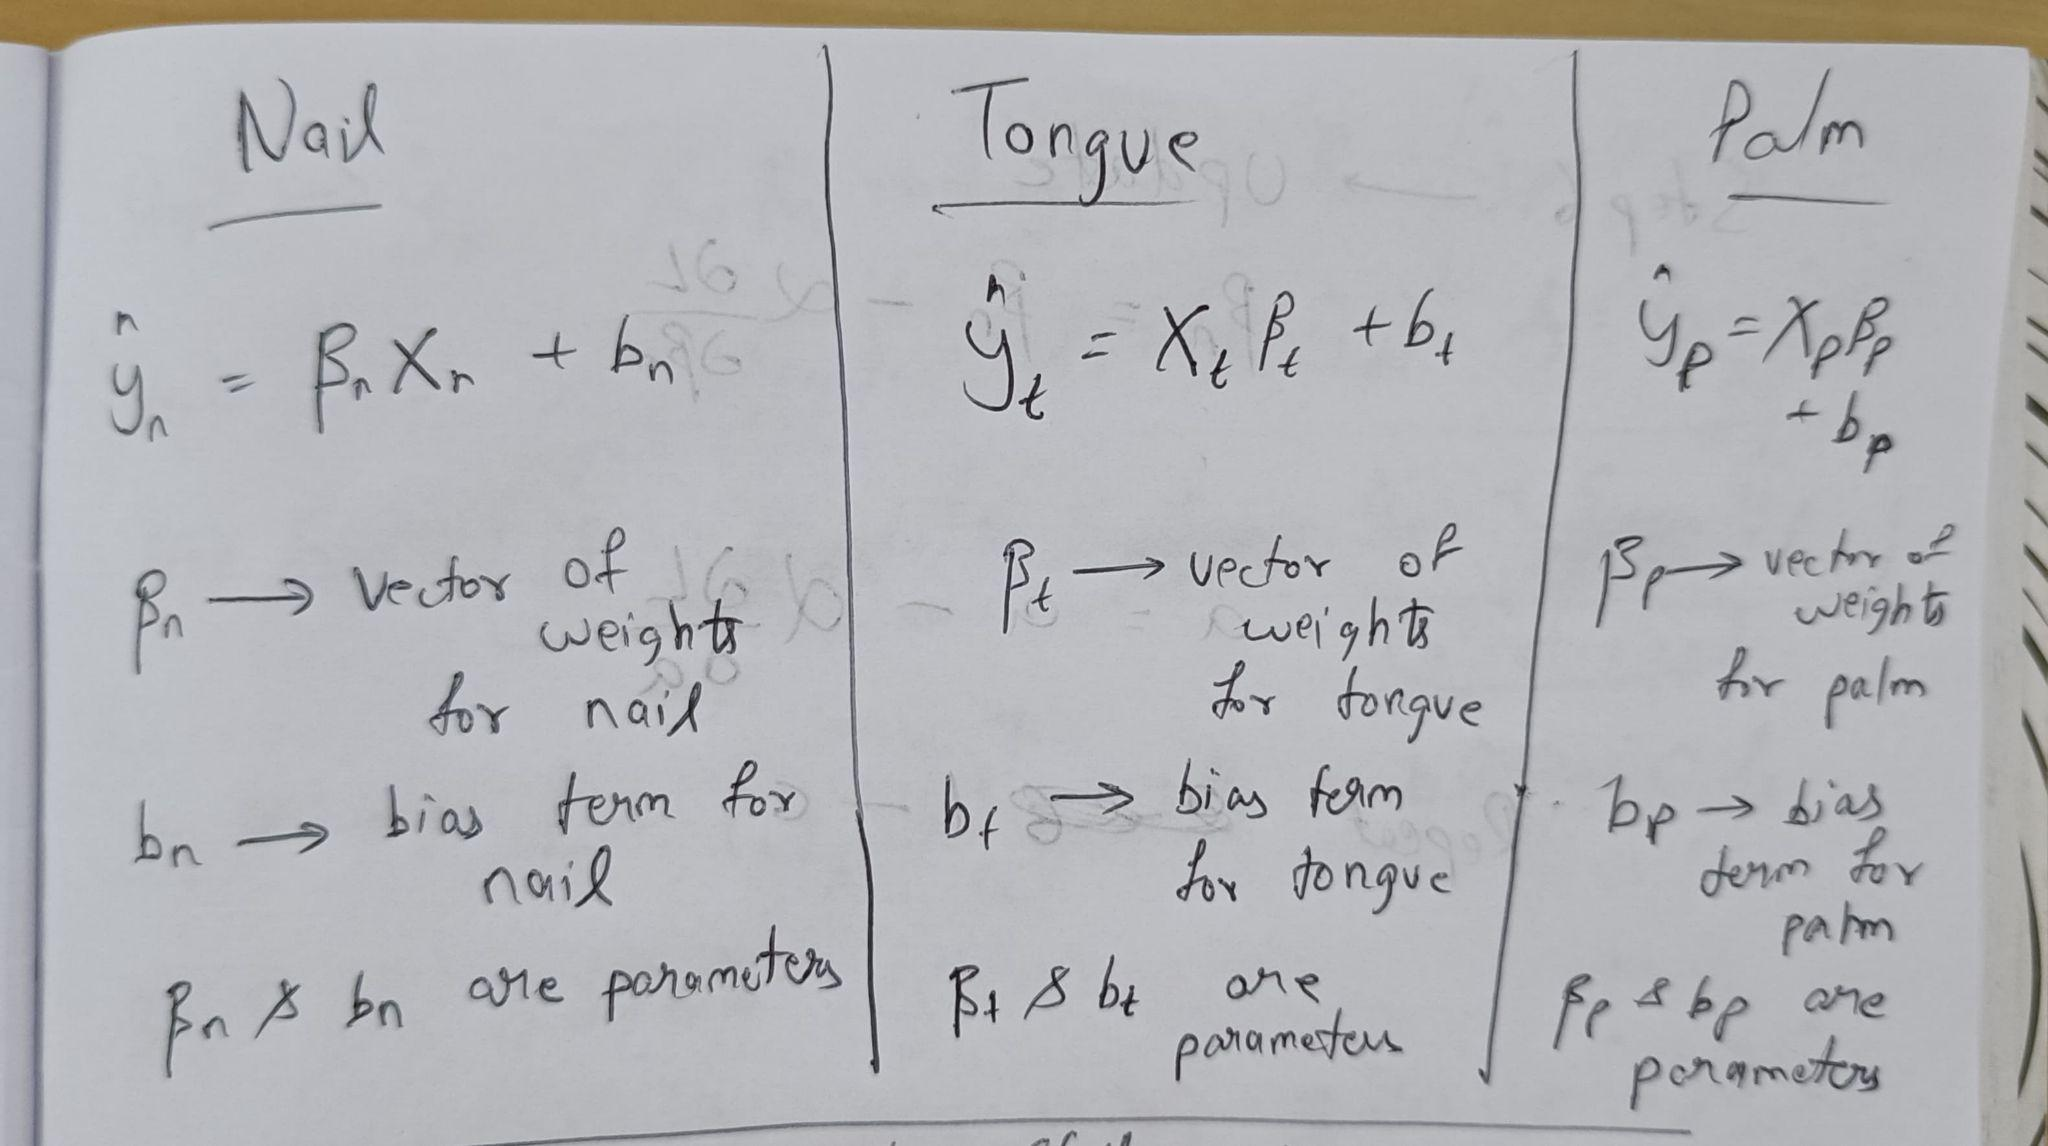 Nail
ŷₙ = βₙ Xₙ + bₙ
βₙ → vector of
weights
for nail
bₙ → bias term for
nail
βₙ & bₙ are parameters
Tongue
ŷₜ = Xₜ βₜ + bₜ
βₜ → vector of
weights
for tongue
bₜ → bias term
for tongue
βₜ & bₜ are
parameters
Palm
ŷₚ = Xₚ βₚ
+ bₚ
βₚ → vector of
weights
for palm
bₚ → bias
term for
palm
βₚ & bₚ are
parameters